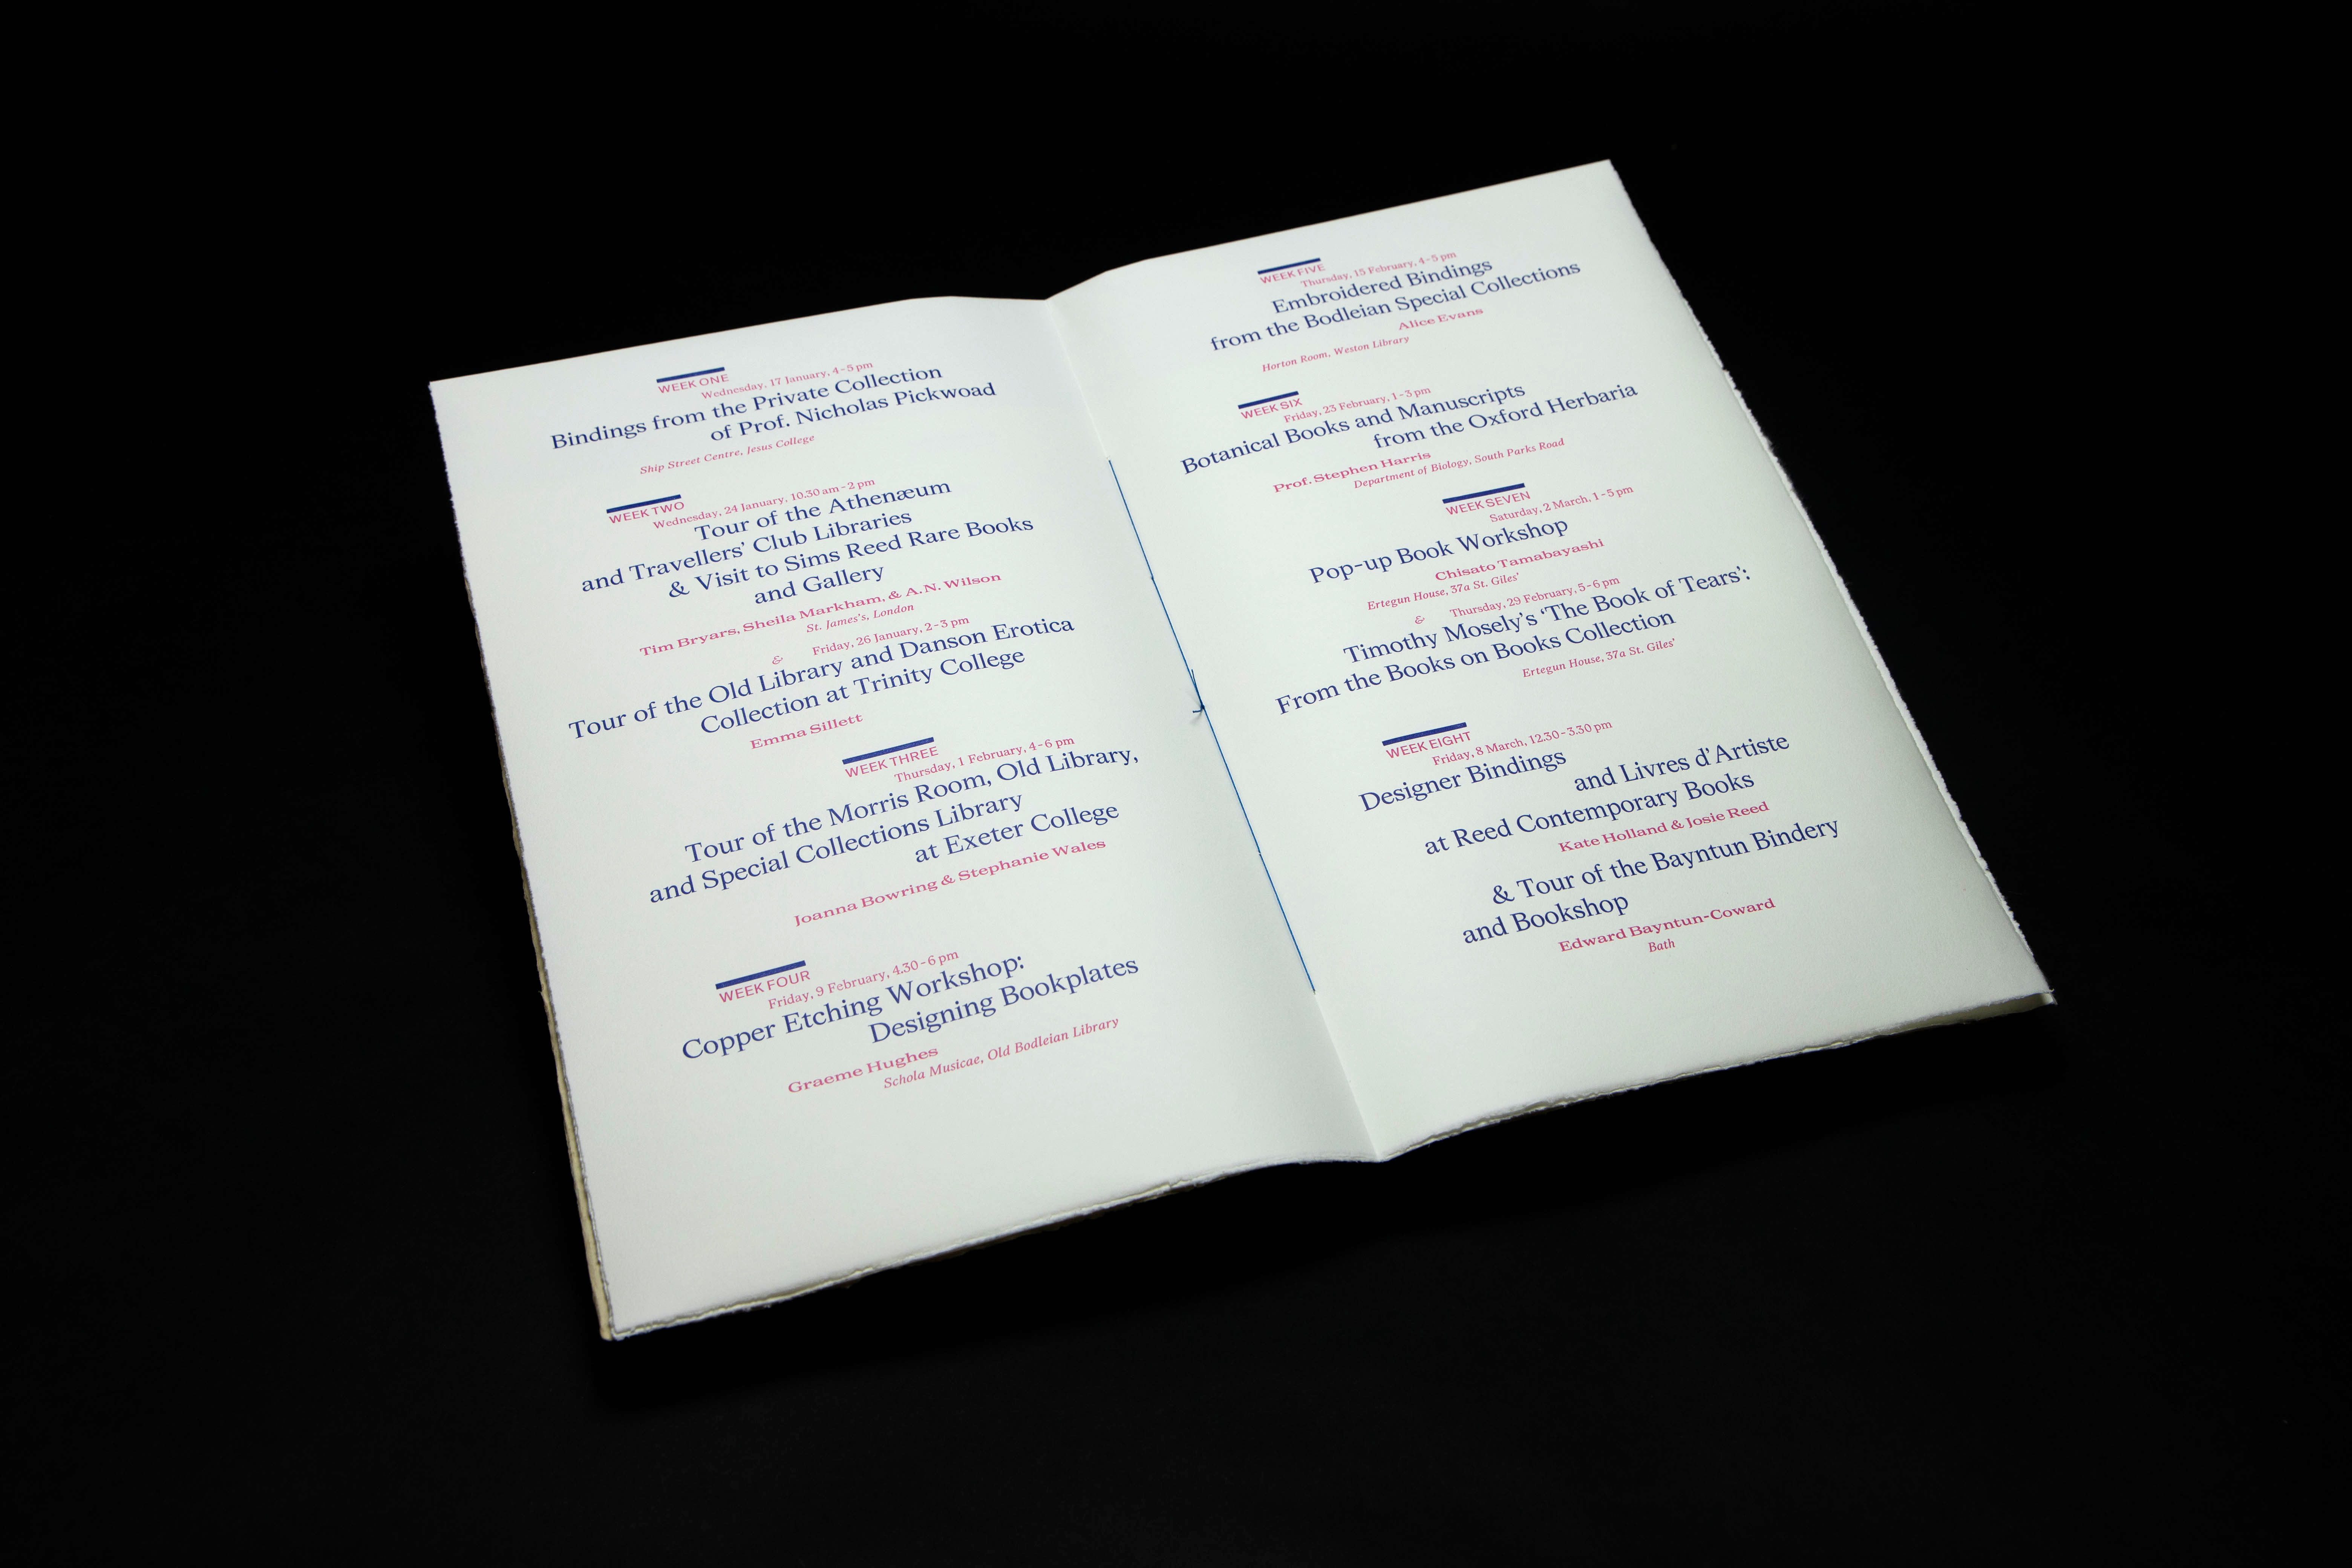 WEEK ONE
Wednesday, 17 January, 4-5 pm
Bindings from the Private Collection
of Prof. Nicholas Pickwoad
Ship Street Centre, Jesus College
WEEK TWO
Wednesday, 24 January, 10.30 am-2 pm
Tour of the Athenæum
and Travellers’ Club Libraries
& Visit to Sims Reed Rare Books
and Gallery
Tim Bryars, Sheila Markham, & A. N. Wilson
St. James's, London
& Friday, 26 January, 2-3 pm
Tour of the Old Library and Danson Erotica
Collection at Trinity College
Emma Sillett
WEEK THREE
Thursday, 1 February, 4-6 pm
Tour of the Morris Room, Old Library,
and Special Collections Library
at Exeter College
Joanna Bowring & Stephanie Wales
WEEK FOUR
Friday, 9 February, 4.30-6 pm
Copper Etching Workshop:
Designing Bookplates
Graeme Hughes
Schola Musicae, Old Bodleian Library
WEEK FIVE
Thursday, 15 February, 4-5 pm
Embroidered Bindings
from the Bodleian Special Collections
Alice Evans
Horton Room, Weston Library
WEEK SIX
Friday, 23 February, 1-3 pm
Botanical Books and Manuscripts
from the Oxford Herbaria
Prof. Stephen Harris
Department of Biology, South Parks Road
WEEK SEVEN
Saturday, 2 March, 1-5 pm
Pop-up Book Workshop
Chisato Tamabayashi
Ertegun House, 37a St. Giles’
& Thursday, 29 February, 5-6 pm
Timothy Mosely’s ‘The Book of Tears’:
From the Books on Books Collection
Ertegun House, 37a St. Giles’
WEEK EIGHT
Friday, 8 March, 12.30-3.30 pm
Designer Bindings
and Livres d’Artiste
at Reed Contemporary Books
Kate Holland & Josie Reed
& Tour of the Bayntun Bindery
and Bookshop
Edward Bayntun-Coward
Bath